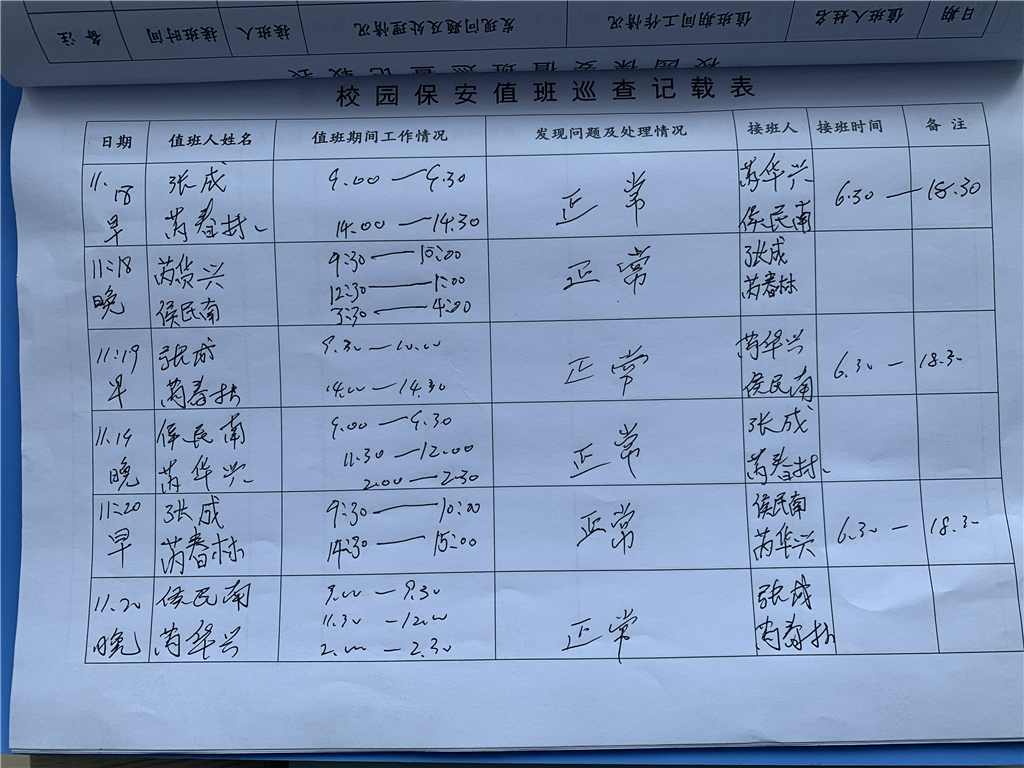 备注 接班时间 接班人 发现问题及处理情况 值班期间工作情况 值班人姓名 日期
校园保安值班巡查记载表
校园保安值班巡查记载表
日期 值班人姓名 值班期间工作情况 发现问题及处理情况 接班人 接班时间 备注
11.18 张成 9.00—9.30 正常 芮华兴 6.30—18.30
早 芮春林 14.00—14.30 侯民南
11:18 芮华兴 9:30—10:00 正常 张成
晚 侯民南 12:30—1:00 芮春林
3:30—4:00
11:19 张成 9.30—10.00 正常 芮华兴 6.30—18.30
早 芮春林 14.00—14.30 侯民南
11.19 侯民南 9.00—9.30 正常 张成
晚 芮华兴 11.30—12.00 芮春林
2.00—2.30
11:20 张成 9:30—10:00 正常 侯民南 6.30—18.30
早 芮春林 14:30—15:00 芮华兴
11.20 侯民南 9.00—9.30 正常 张成
晚 芮华兴 11.30—12.00 芮春林
2.00—2.30